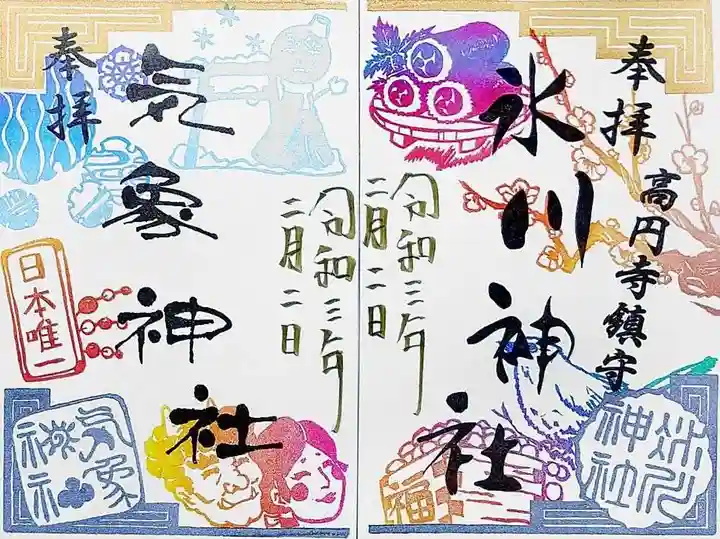 奉拝
高円寺鎮守
氷川神社
令和三年
二月二日
福
氷川
神社
奉拝
気象神社
令和三年
二月二日
日本唯一
気象
神社